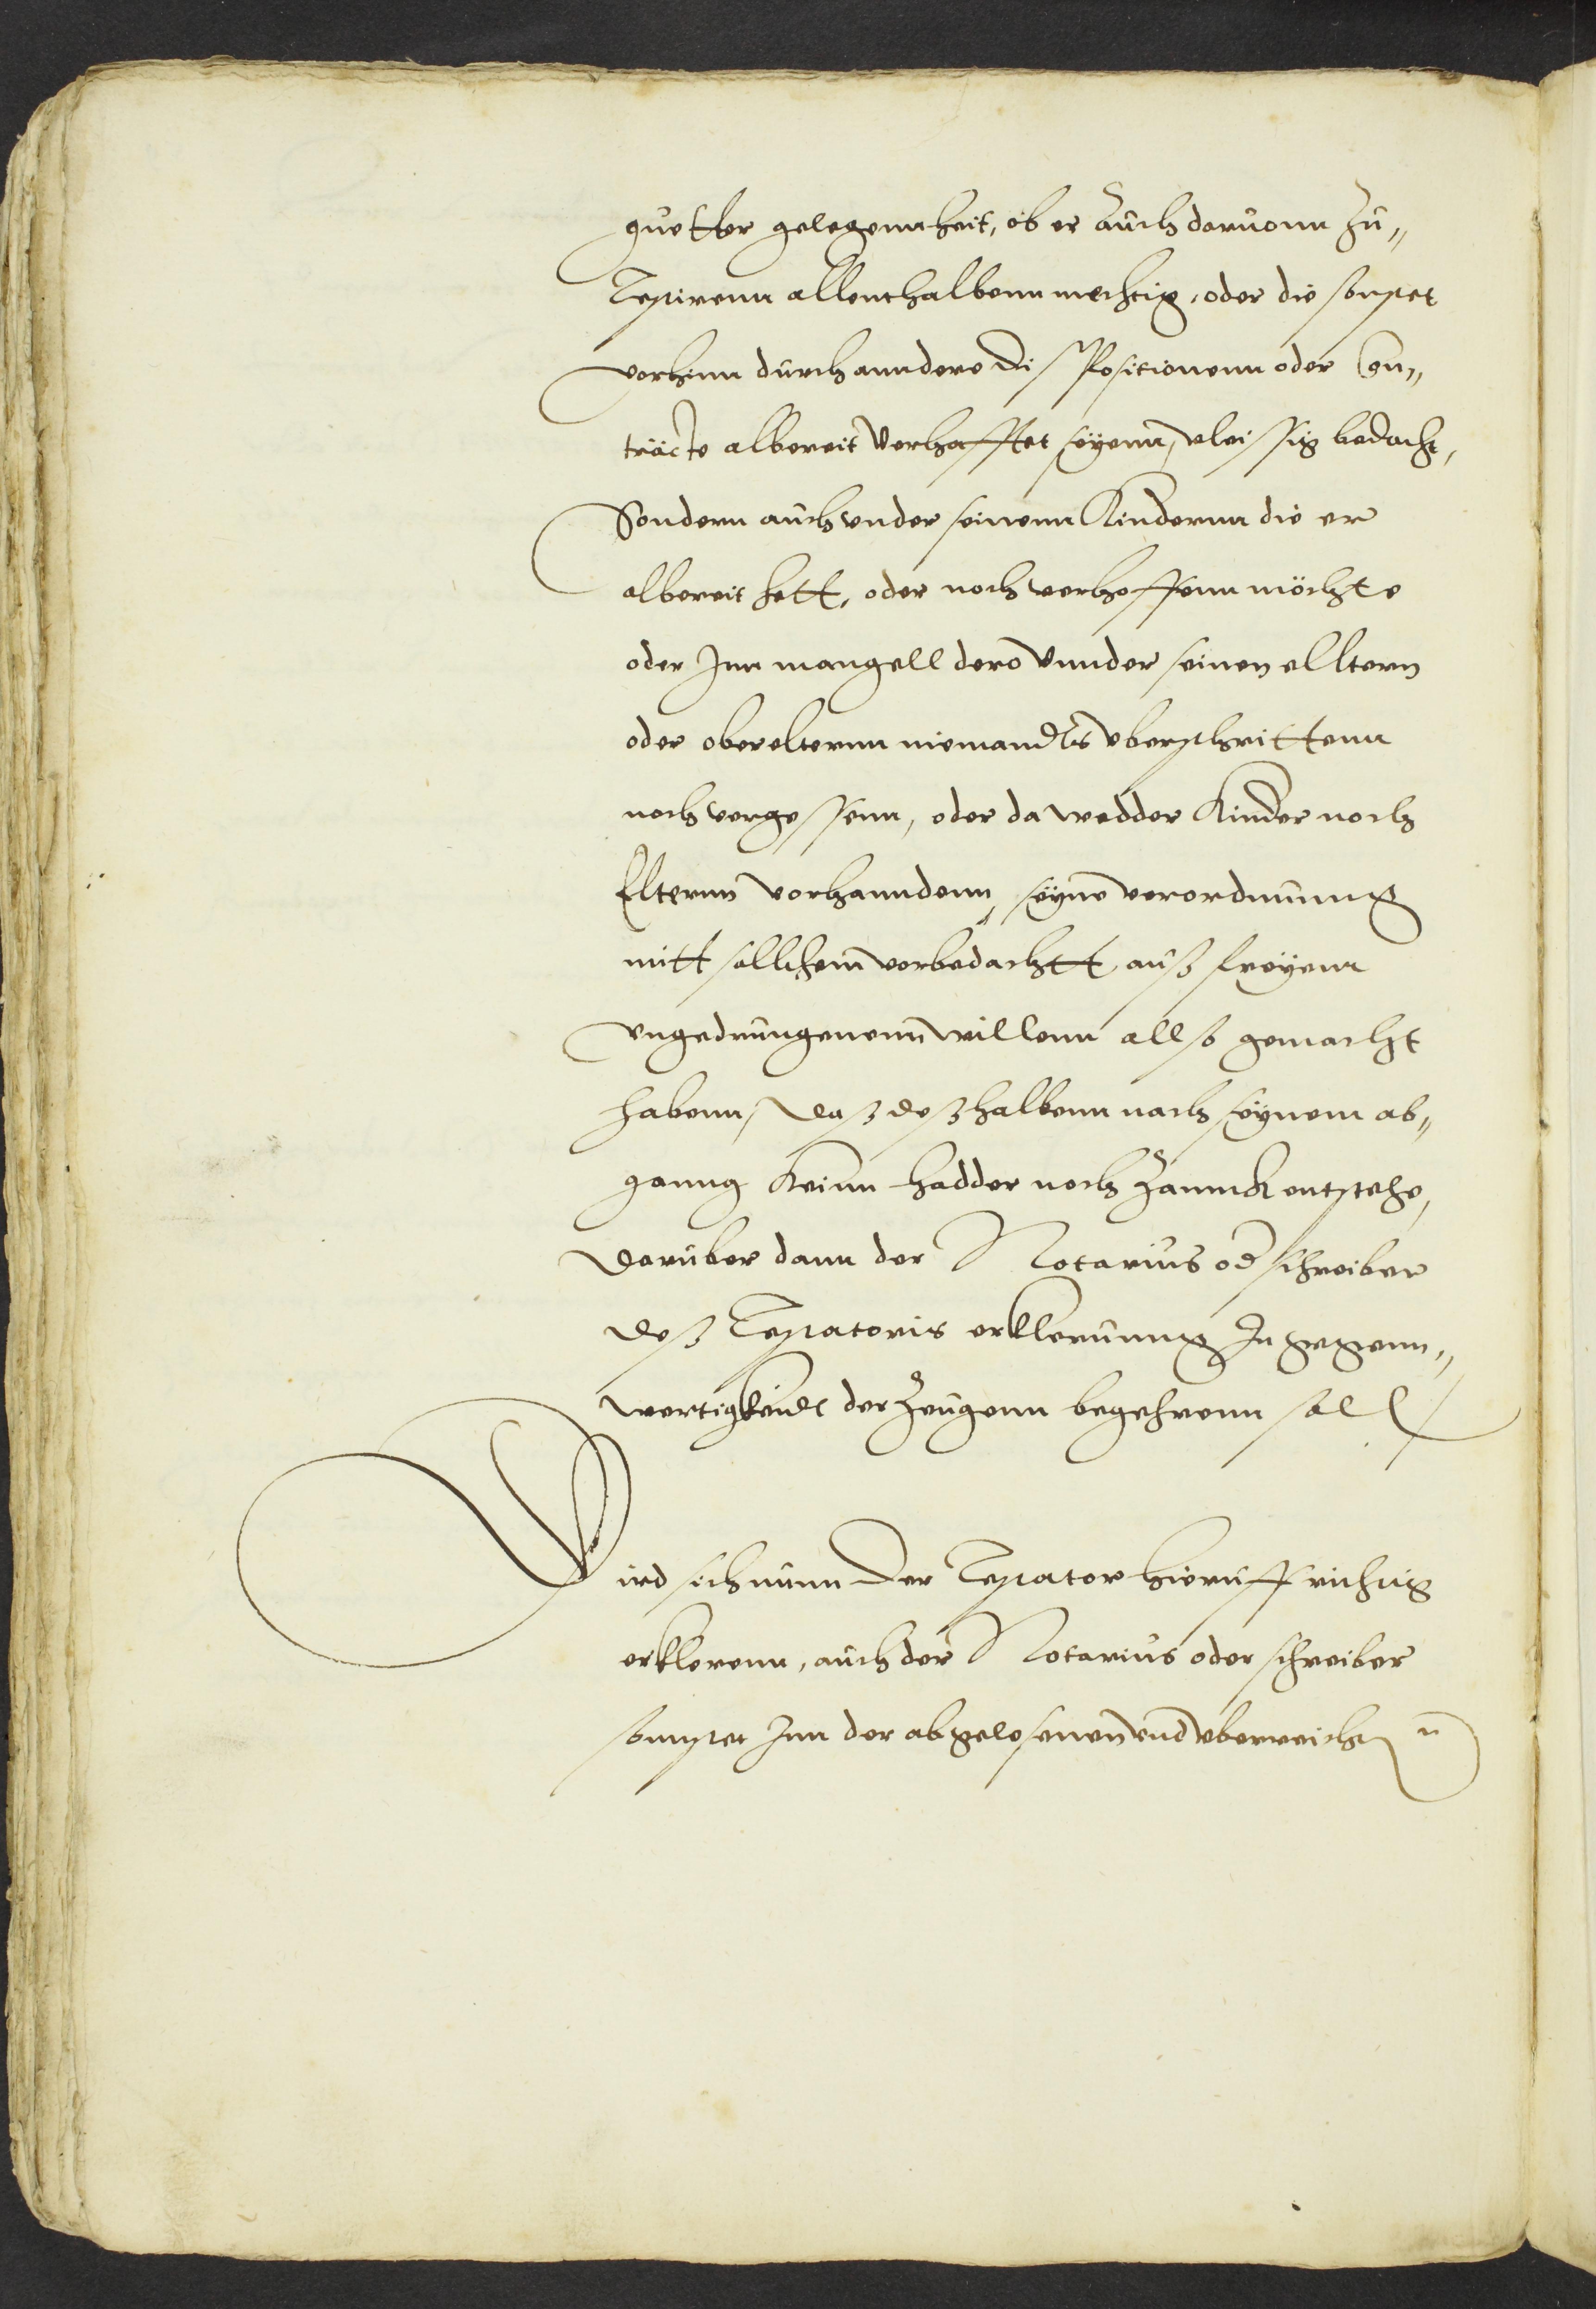 guetter gelegennheit, ob er auch daruonn zu„
Testirenn allenthalbenn mechtig, oder die sonstet
vorhinn durch anndere Dispositionenn oder Con„
tracte albereit verhafftet seyenn, vleissig bedacht,
Sondern auch vnder seinenn Kindernn die er
albereit hett, oder noch verhoffenn möchte
oder Inn mangell dero vnnder seinen elltern
oder oberelternn niemandts vberschrittenn
noch vergessenn, oder da wedder Kinder noch
Elternn vorhanndenn, seyne verordnunng
mitt sollchem vorbedachtt, auß freyenn
vngedrungenenn willenn allso gemacht
habenn, daß deßhalbenn nach seynem ab„
ganng keinn hadder noch zannck entstehe,
Darüber dann der Notarius od schreiber
deß Testatoris erklerunng In gegenn„
wertigkeidt der Zeugenn begehrenn soll
Wird sich nunn der Testator hieruff richtig
erklerenn, auch der Notarius oder schreiber
sonnstet Inn der abgelesenen vnd vberreichten